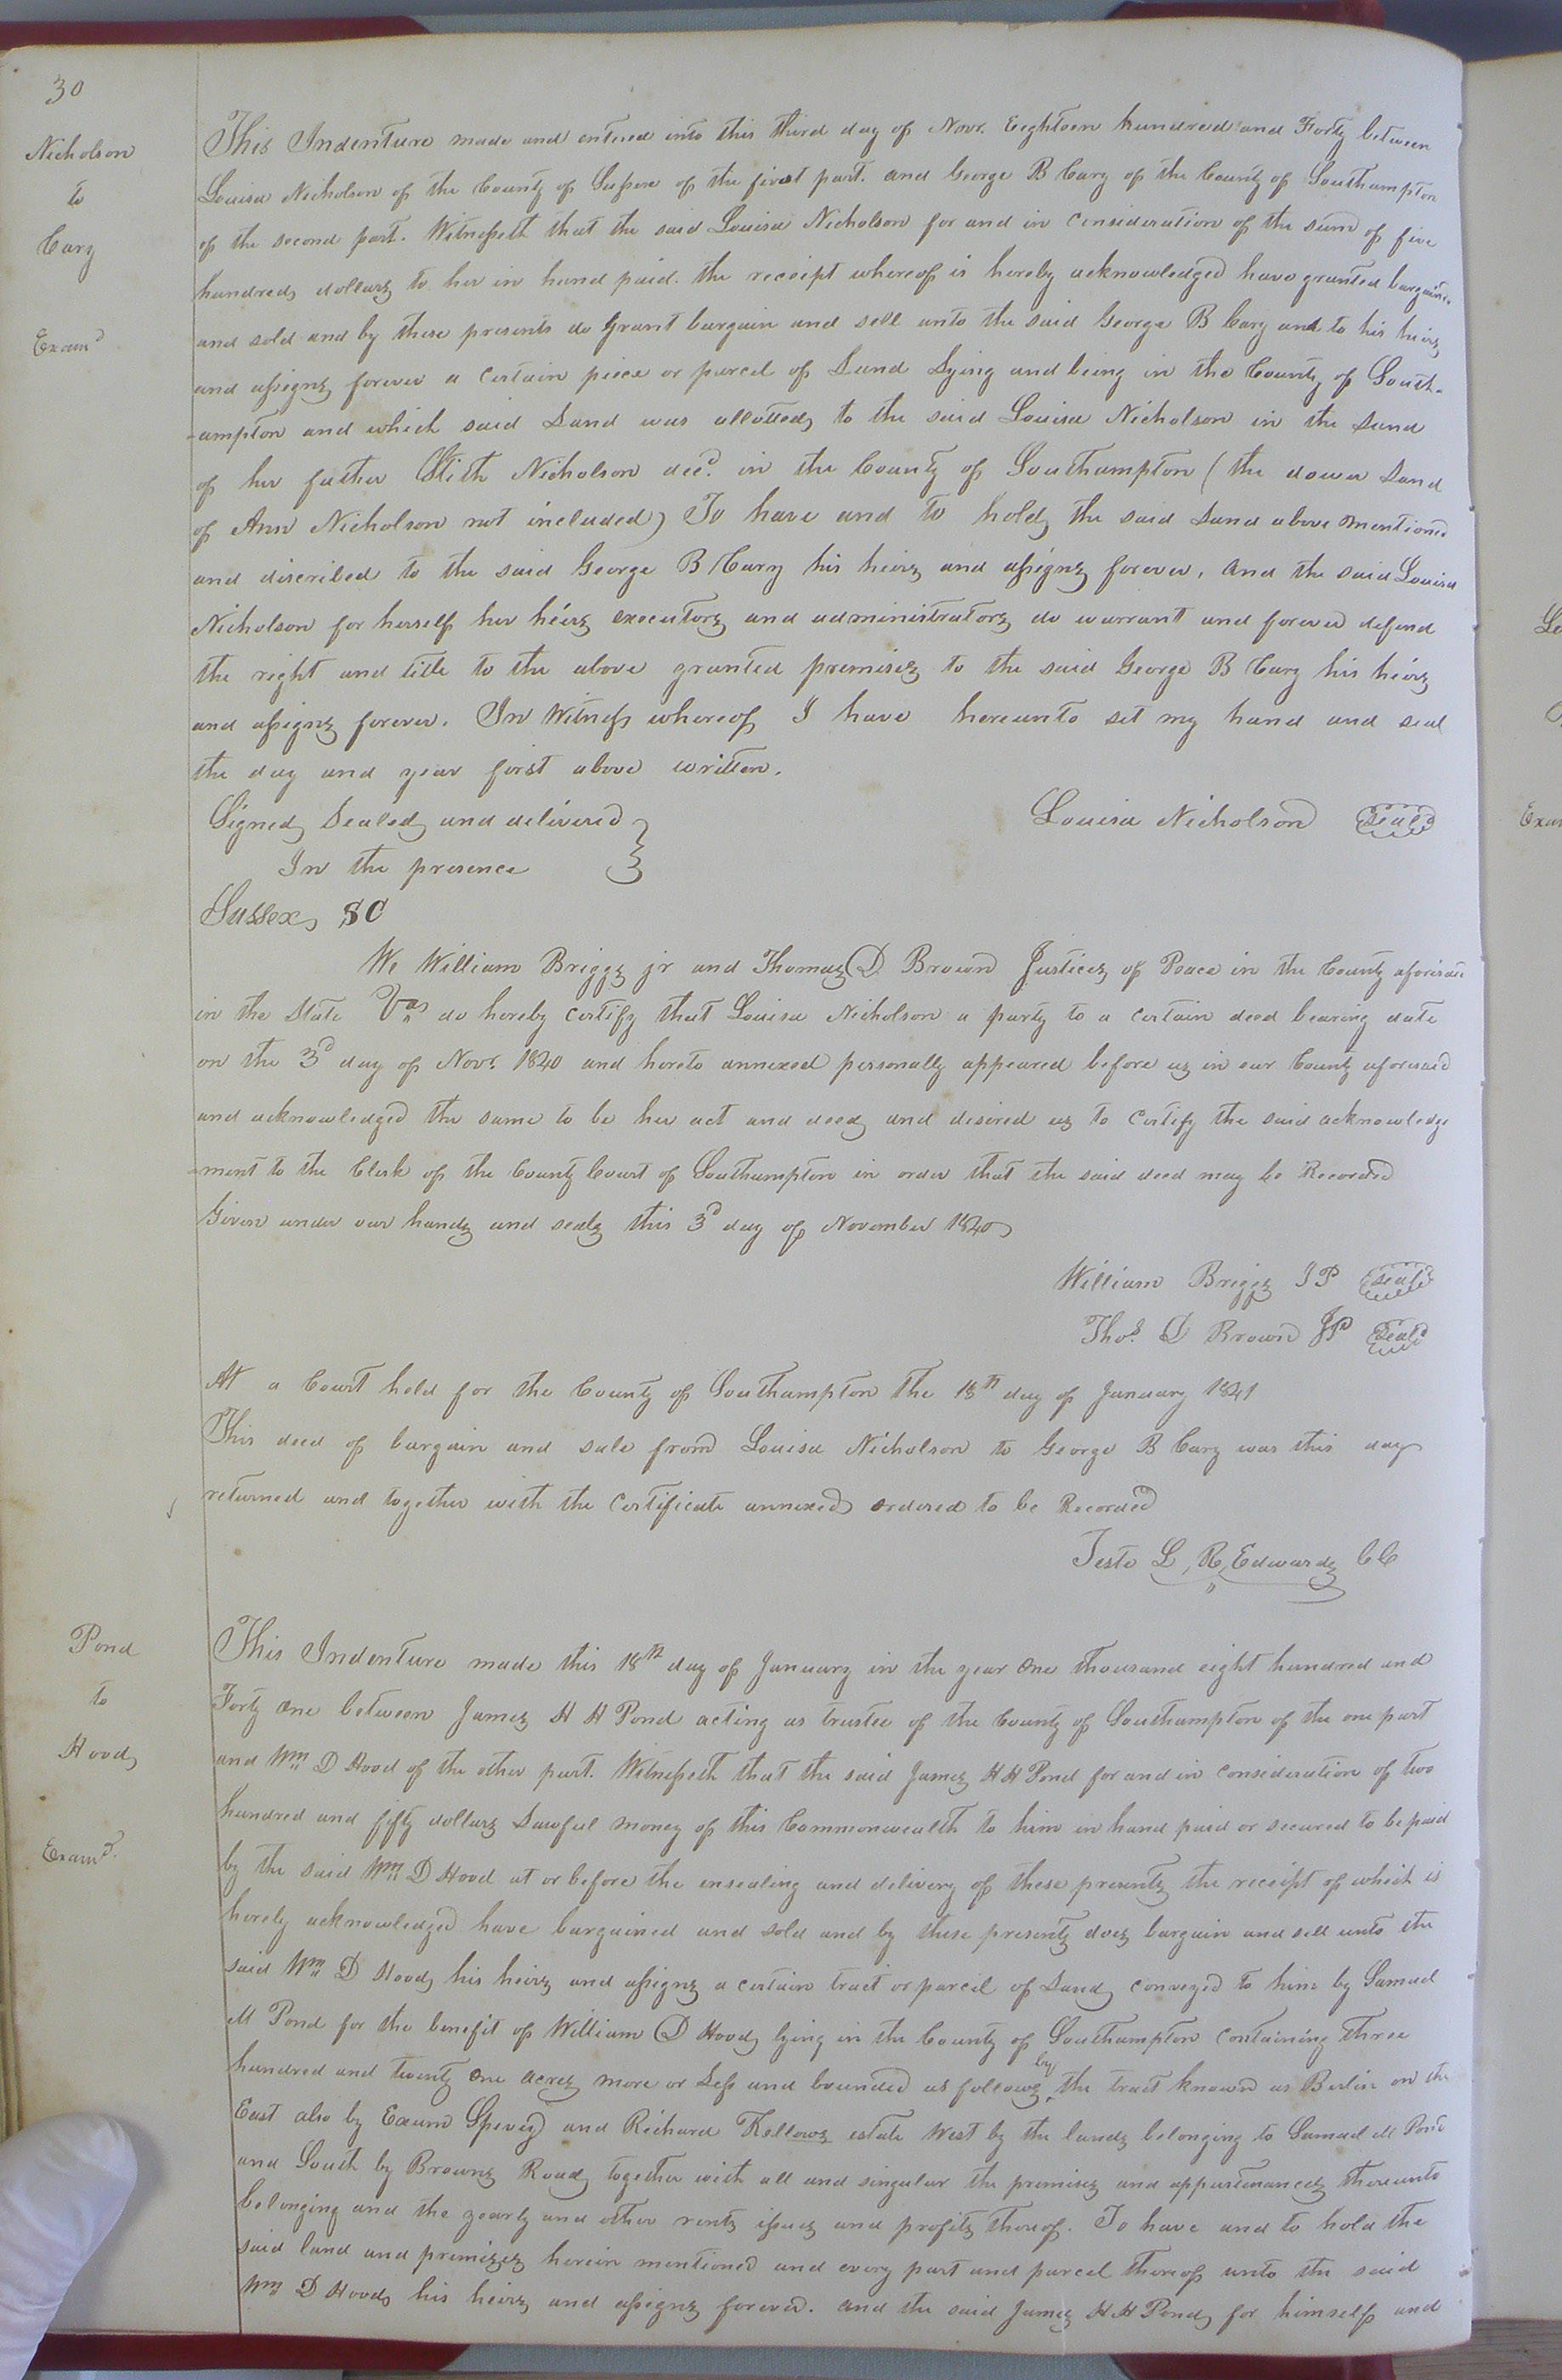 30
Nicholson
to
Cary
Examd
This Indenture made and entered into this third day of Novr. Eeighteen hundred and Forty between
Louisa Nicholson of the County of Sussex of the first part. and George B Cary of the County of Southampton
of the second part. Witnesseth that the said Louisa Nicholson for and in Consideration of the sum of five
hundred dollars to her in hand paid. the receipt whereof is hereby acknowledged have granted bargain.
and sold and by these presents do Grant bargain and sell unto the said George B Cary and to his heirs
and assigns forever a Certain piece or parcel of Land Lying and being in the County of South-
-ampton and which said Land was allotted to the said Louisa Nicholson in the Land
of her father Stith Nicholson decd. in the County of Southampton (the dower Land
of Ann Nicholson not included) To have and to hold the said Land above mentioned
and discribed to the said George B Cary his heirs and assigns forever, and the said Louisa
Nicholson for herself her heirs executors and administrators do warrant and forever defend
the right and title to the above granted premises to the said George B Cary his heirs
and assigns forever. In Witness whereof I have hereunto set my hand and seal
the day and year first above written.
Signed Sealed and delivered
Louisa Nicholson Seal
In the presence
Sussex SC
We William Briggs jr and Thomas D Brown Justices of Peace in the County aforesaid
in the State Va do hereby Certify that Louisa Nicholson a party to a Certain deed bearing date
on the 3d day of Novr. 1840 and hereto annexed personally appeared before us in our County aforesaid
and acknowledged the same to be her act and deed and desired us to Certify the said acknowledge
-ment to the Clerk of the County Court of Southampton in order that the said deed may be Recorded
Given under our hands and seals this 3d day of November 1840
William Briggs JP Seal
Thos. D Brown JP Seal
At a Court held for the County of Southampton the 18th day of January 1841
This deed of bargain and sale from Louisa Nicholson to George B Cary was this day
returned and together with the Certificate annexed ordered to be Recorded
Teste L, R, Edwards CC
Pond
to
Hood
Examd.
This Indenture made this 18th day of January in the year One thousand eight hundred and
Forty One between James H H Pond acting as trustee of the County of Southampton of the one part
and Wm D Hood of the other part. Witnesseth that the said James H H Pond for and in Consideration of two
hundred and fifty dollars Lawful money of this Commonwealth to him in hand paid or secured to be paid
by the said Wm D Hood at or before the ensealing and delivery of these presents the receipt of which is
hereby acknowledged have bargained and sold and by these presents does bargain and sell unto the
said Wm D Hood his heirs and assigns a certain tract or parcel of Land conveyed to him by Samuel
M Pond for the benefit of William D Hood lying in the County of Southampton containing three
hundred and twenty One acres more or Less and bounded as follows by the tract known as Berlin on the
East also by Exum Spivey and Richard Kellows estate West by the lands belonging to Samuel M Pond
and South by Browns Road together with all and singular the premises and appurtenances thereunto
belonging and the yearly and other rents issues and profits thereof. To have and to hold the
said land and premises herein mentioned and every part and parcel thereof unto the said
Wm D Hood his heirs and assigns forever. and the said James H H Pond for himself and